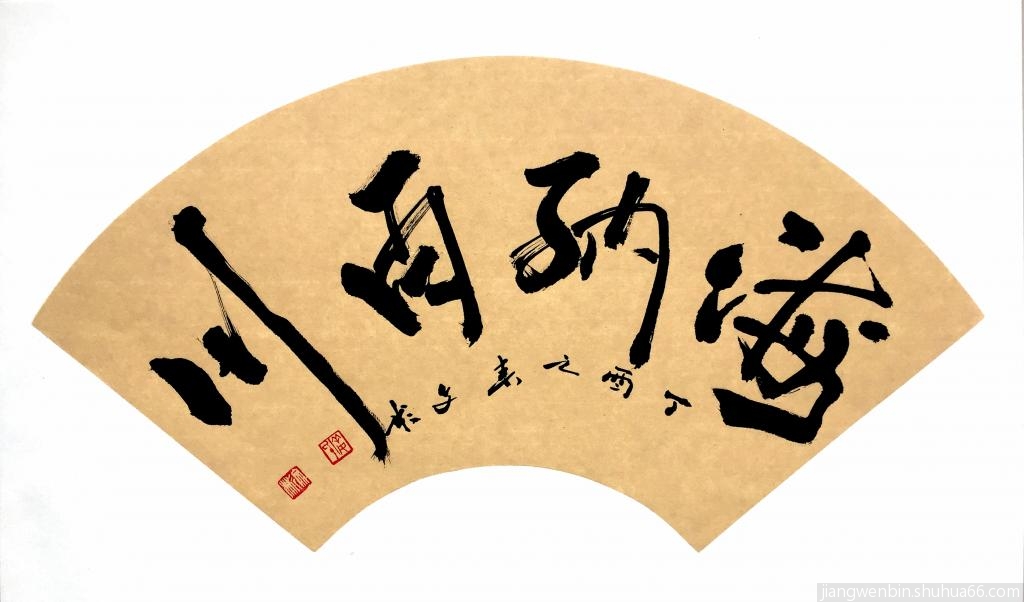 海纳百川
丁酉之春文彬
jiangwenbin.shuhua66.com